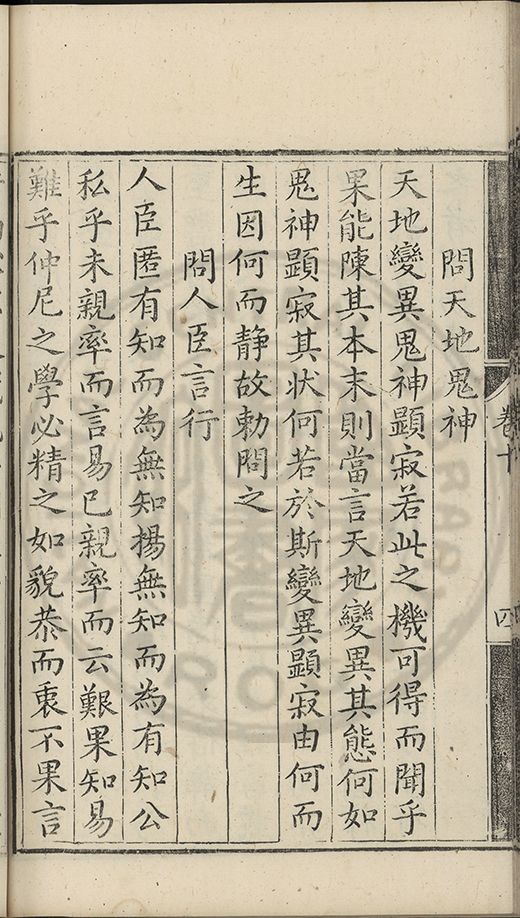 問天地鬼神
天地變異鬼神顯寂若此之機可得而聞乎
果能陳其本末則當言天地變異其態何如
鬼神顯寂其狀何若於斯變異顯寂由何而
生因何而靜故勅問之
問人臣言行
人臣匿有知而為無知揚無知而為有知公
私乎未親率而言易已親率而云艱果知易
難乎仲尼之學必精之如貌恭而衷不果言
卷十
四